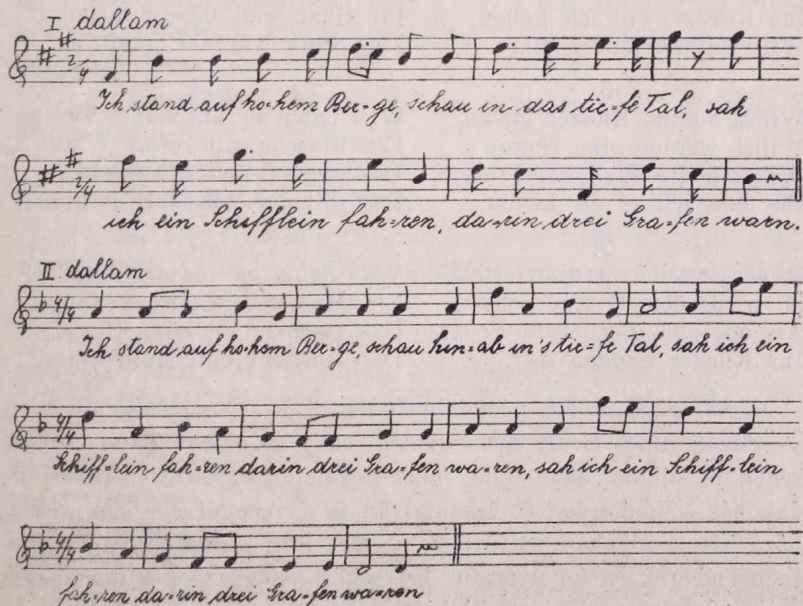 I dallam
2/4
Ich stand auf ho-hem Ber-ge, schau in das tie-fe Tal, sah
2/4
ich ein Schifflein fah-ren, da-rin drei Gra-fen warn.
II dallam
4/4
Ich stand auf ho-hem Ber-ge, schau hin-ab in's tie-fe Tal, sah ich ein
4/4
Schiff-lein fah-ren darin drei Gra-fen wa-ren, sah ich ein Schiff-lein
4/4
fah-ren da-rin drei Gra-fen wa-ren